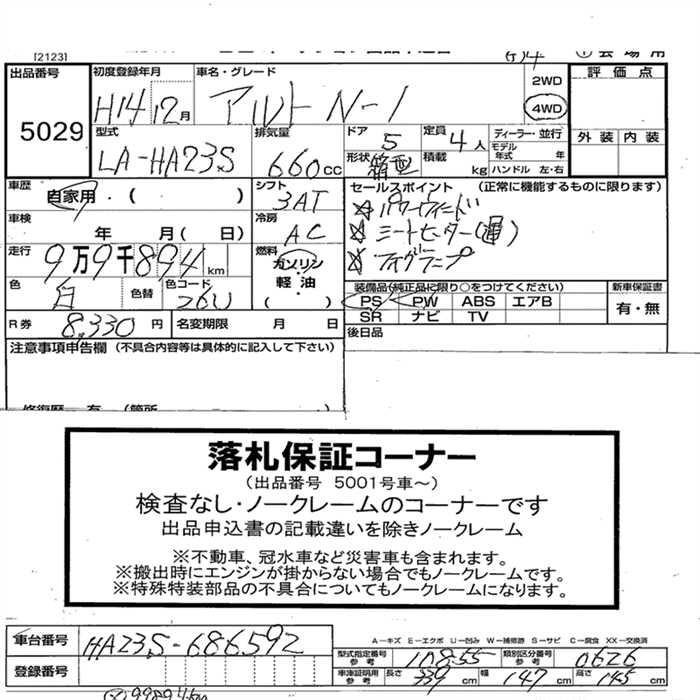 [2123]
出品番号 5029
初度登録年月 H14 12月
車名・グレード アルト N-1
2WD
4WD
評価点
外装 内装
型式 LA-HA23S
排気量 660cc
ドア 5
定員 4人
形状 箱型
積載 kg
ディーラー・並行
モデル年式 年
ハンドル 左・右
車歴 自家用・( )
シフト 3AT
車検 年 月( 日)
冷房 AC
走行 9万9千894km
燃料 ガソリン・軽油・( )
色 白 色替 色コード 26U
R券 8,330円 名変期限 月 日
セールスポイント (正常に機能するものに限ります)
パワーウィンド
シートヒーター(運)
フォグランプ
装備品(純正品に限り○をつけてください)
PS PW ABS エアB
SR ナビ TV
新車保証書 有・無
後日品
注意事項申告欄 (不具合内容等は具体的に記入して下さい)
落札保証コーナー
(出品番号 5001号車～)
検査なし・ノークレームのコーナーです
出品申込書の記載違いを除きノークレーム
※不動車、冠水車など災害車も含まれます。
※搬出時にエンジンが掛からない場合でもノークレームです。
※特殊特装部品の不具合についてもノークレームになります。
車台番号 HA23S-686592
登録番号
A－キズ E－エクボ U－凹み W－補修跡 S－サビ C－腐食 XX－交換済
型式指定番号参考 10855 類別区分番号参考 0626
車庫証明用参考 長さ 339cm 幅 147cm 高さ 145cm